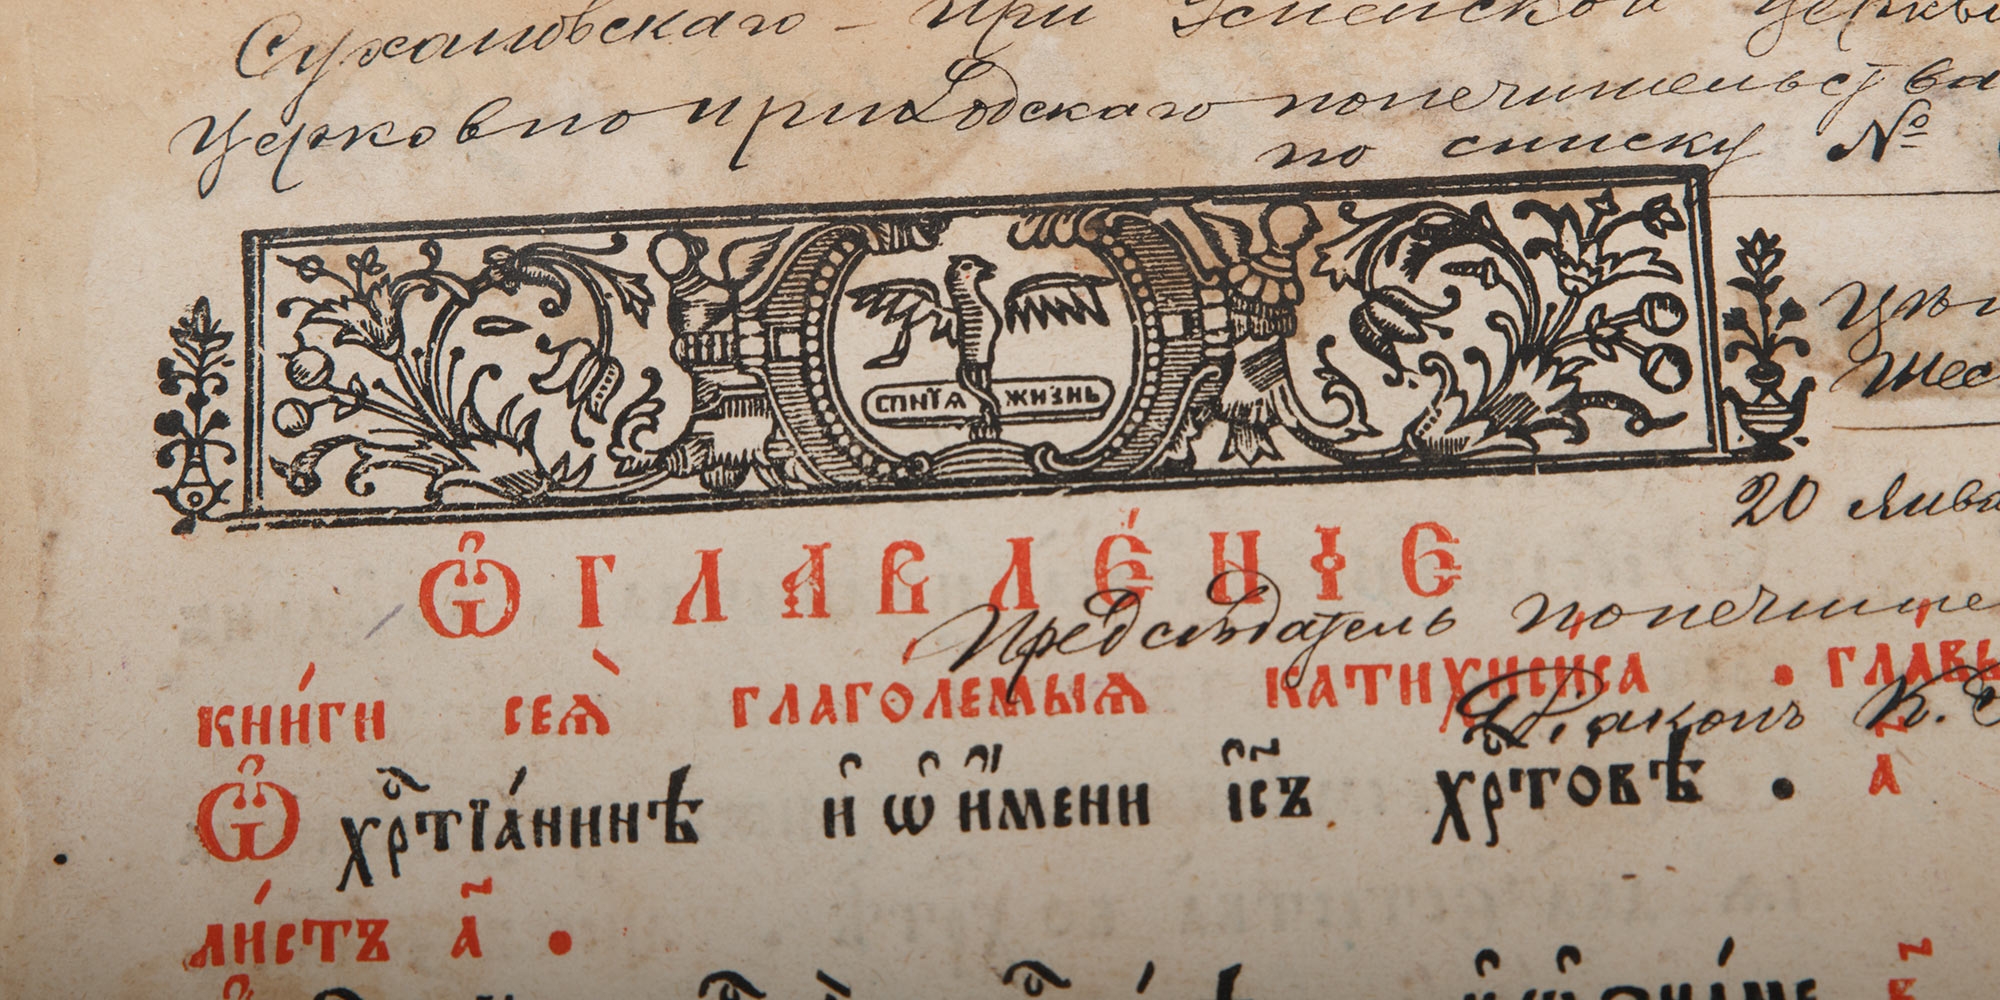 Сухановскаго – при Успенской церкви
Церковно приходскаго попечительства
по списку №
СПНТЇѦ ЖИЗНЬ
20 Янва
Ѽ ГЛАВЛЕ́НІЕ
Председатель попечите
КНИ́ГИ СЕѦ̀ ГЛАГО́ЛЕМЫѦ КАТИХИСИСА . ГЛАВЫ
Діаконъ К.
Ѽ хрⷭ҇тїа́нинѣ и҆ ѡ҆ и҆́мени і҆с҃ъ хрⷭ҇товѣ . а҃
ли́стъ а҃ .